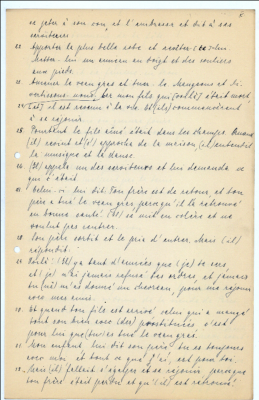 se jeter à son cou, et l'embrasse et dit à ses
serviteurs.
22. Apportez la plus belle robe et
mettez-lui un anneau au doigt et des souliers
aux pieds.
le veau gras et tuez-le. Mangeons et di-
nous, mon fils qui était mort
24. Est il est revenu à la vie. Et (ils) commencèrent
à se réjouir.
25. Pourtant le fils aîné était dans les champs. Quand
(il) revint et (s') approcha de la maison (il) entendit
la musique et la danse.
26. (Il) appela un des serviteurs et lui demanda ce
que c'était.
Celui-ci lui dit Ton frère est de retour et ton
père a tué le veau gras parcqu'il le retrouve
en bonne santé. (Il) se mit en colère et ne
voulut pas entrer.
Son père sortit et le pria d'entrer. Mais (il)
répondit.
Voilà! (Il) ya tant d'années que (je) te sers
et (je) n'ai jamais refusé tes ordres, et jamais
tu (ne) m'as donné un chevreau, pour me réjouir
avec mes amis.
30. Et quand ton fils est arrivé celui qui a mangé
tout son bien avec (des) prostituées, c'est
pour lui que (tu) as tué le veau gras.
31. Mon enfant lui dit son père, tu es toujours
avec moi et tout ce que j'ai, est pour toi.
Mais (il) fallait s'égayer et se réjouir parceque
ton frère était perdu et qu'(il) est retrouvé.